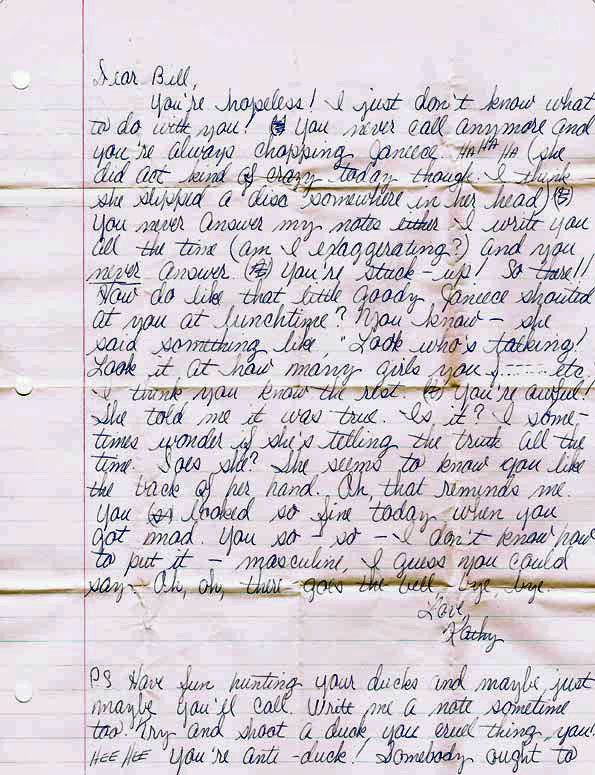 Dear Bill,
You're hopeless! I just don't know what
to do with you! You never call anymore and
you're always chopping Janiece. HA HA HA (she
did act kind of crazy today though. I think
she slipped a disc somewhere in her head)
You never answer my notes either. I write you
all the time (am I exaggerating?) and you
never answer. You're stuck-up! So there!!
How do like that little goody Janiece shouted
at you at lunchtime? You know - she
said something like, "Look who's talking!
Look it at how many girls you ...... etc.
I think you know the rest. You're awful!
She told me it was true. Is it? I some-
times wonder if she's telling the truth all the
time. Does she? She seems to know you like
the back of her hand. Oh, that reminds me.
You looked so fine today when you
got mad. You so - so - I don't know how
to put it - masculine, I guess you could
say - Oh, oh, there goes the bell - bye, bye.
Love,
Kathy
PS Have fun hunting your ducks and maybe, just
maybe you'll call. Write me a note sometime
too. Try and shoot a duck, you cruel thing you!
HEE HEE You're anti-duck! Somebody ought to